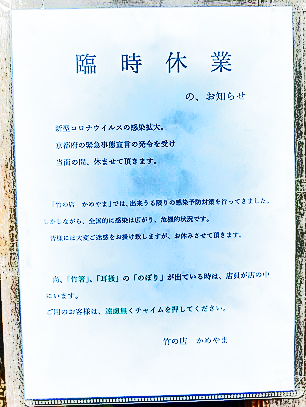 臨時休業
の、お知らせ
新型コロナウイルスの感染拡大。
京都府の緊急事態宣言の発令を受け
当面の間、休ませて頂きます。
「竹の店　かめやま」では、出来うる限りの感染予防対策を行ってきました。
しかしながら、全国的に感染は広がり、危機的状況です。
皆様には大変ご迷惑をお掛け致しますが、お休みさせて頂きます。
尚、「竹箸」、「耳掻」の「のぼり」が出ている時は、店員が店の中
にいます。
ご用のお客様は、遠慮無くチャイムを押してください。
竹の店　かめやま